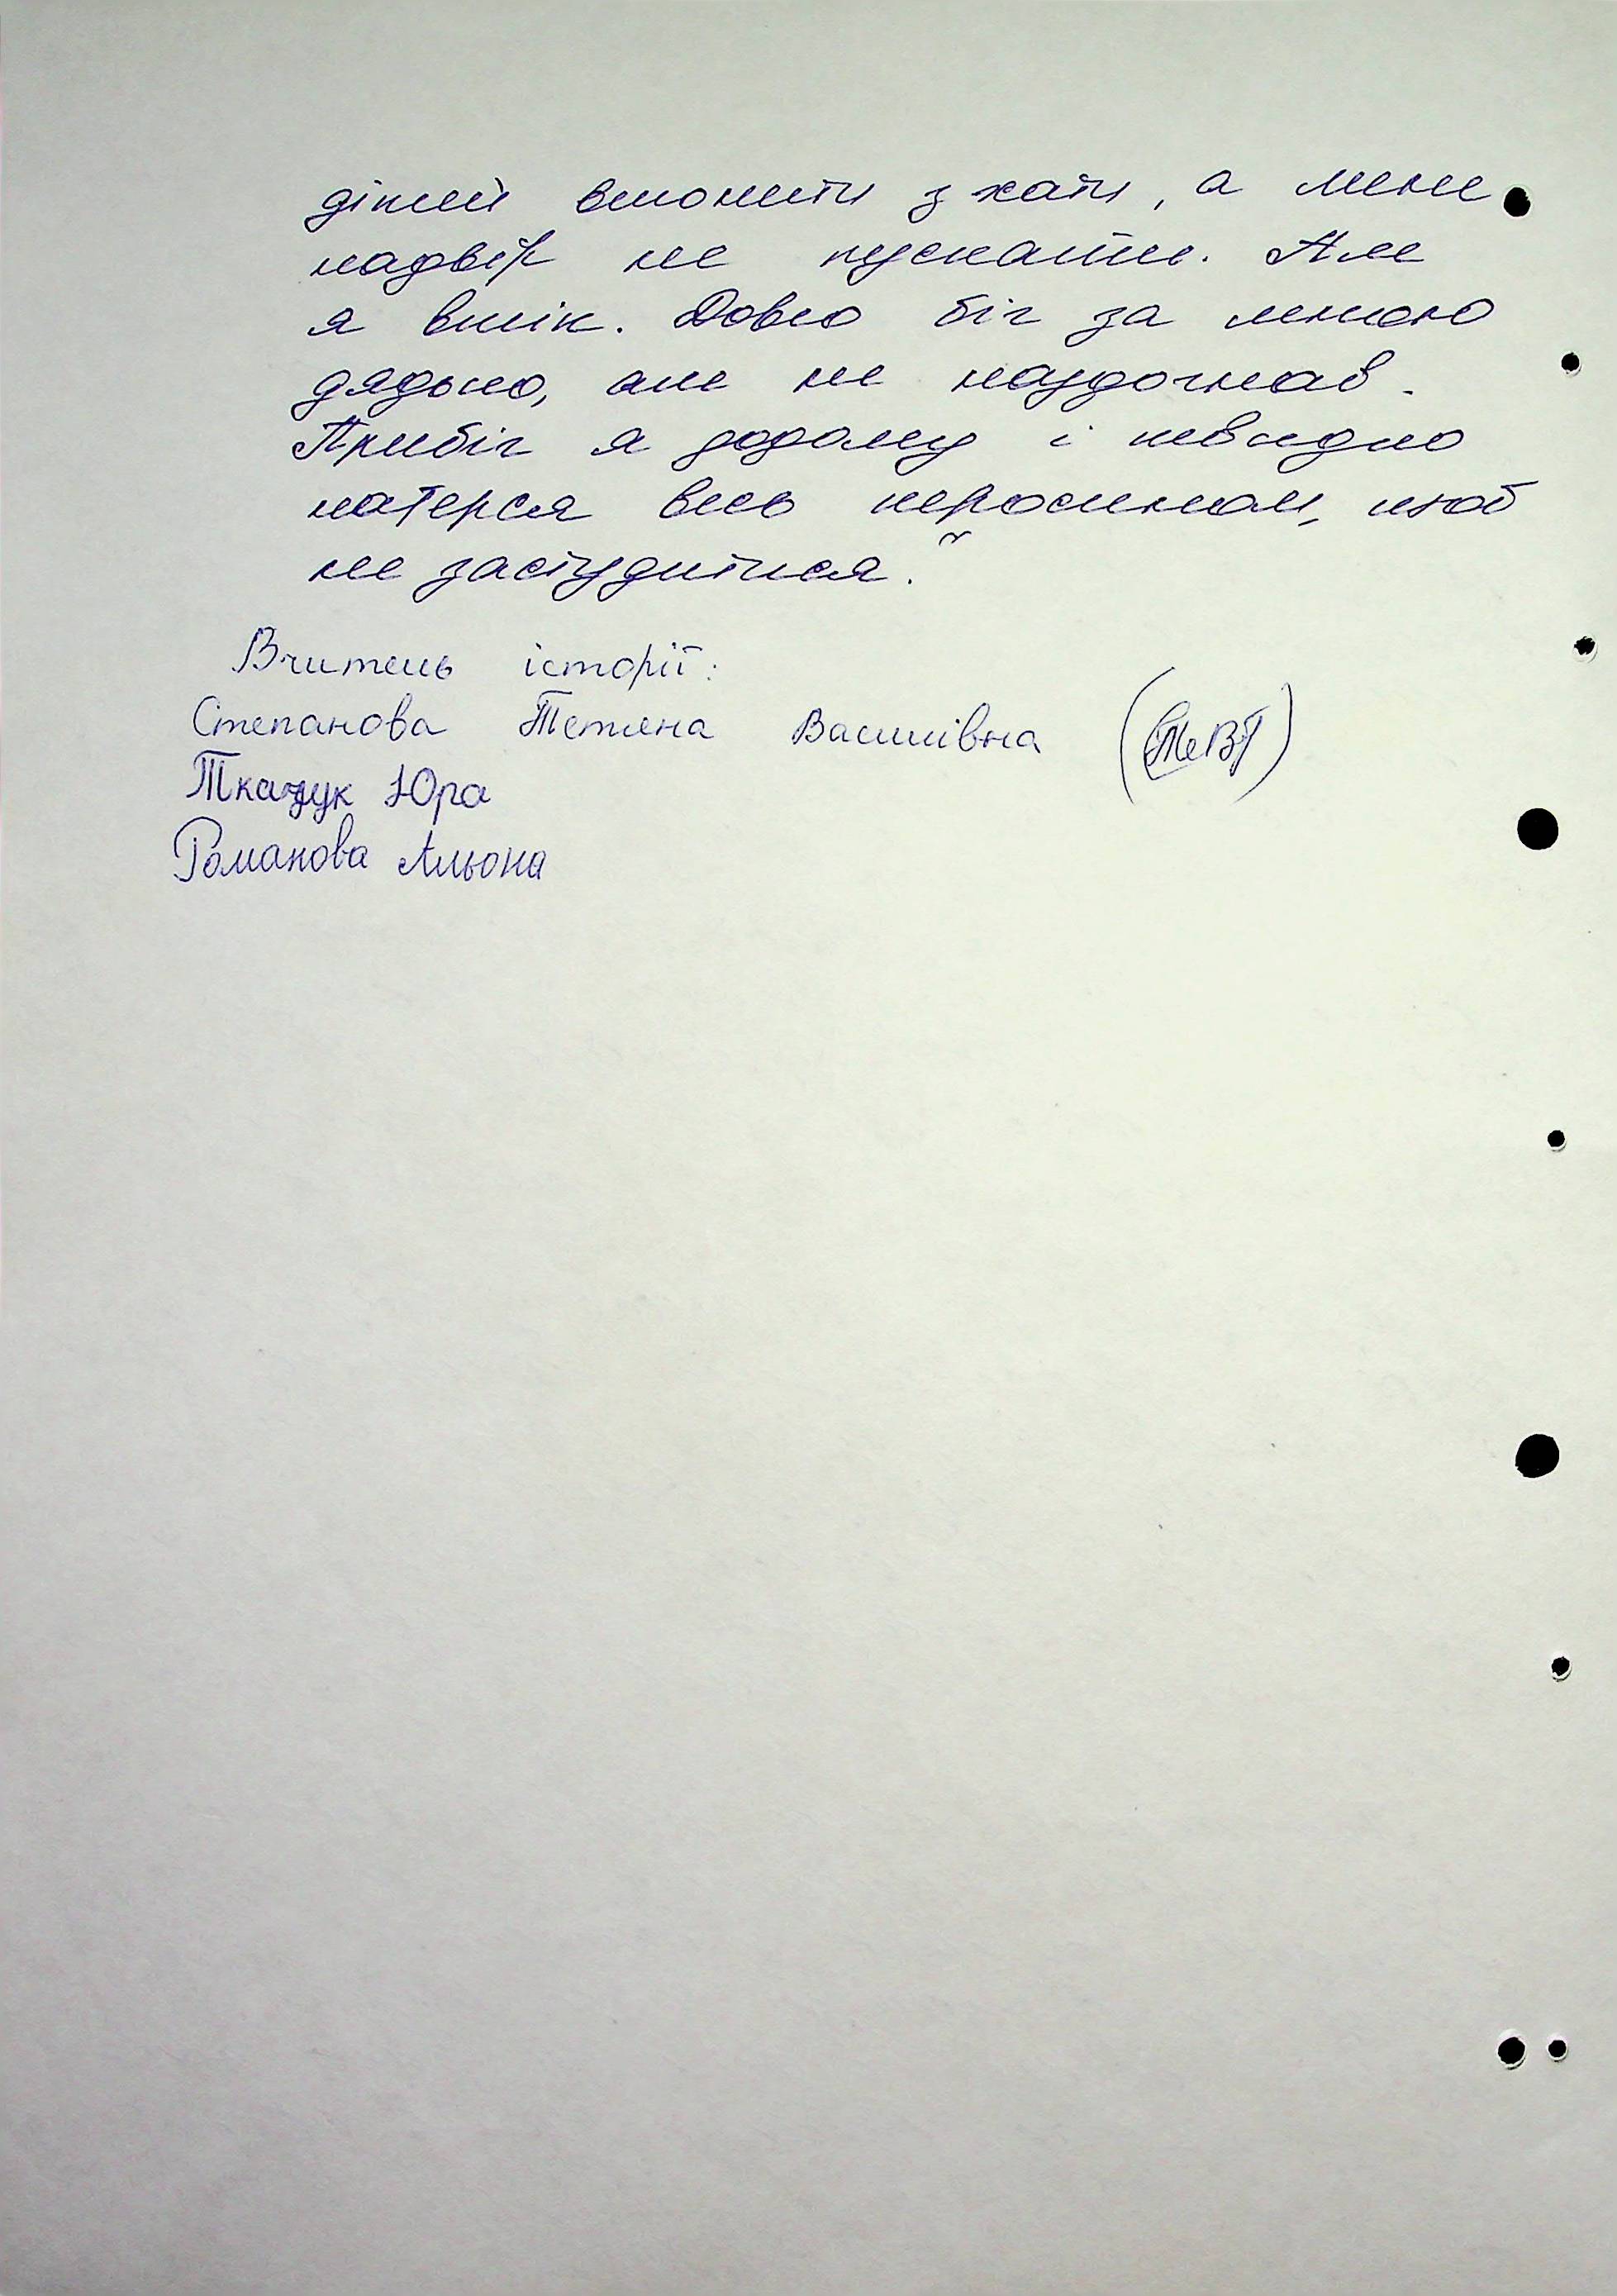 дітей виганяти з хати, а мене
надвір не пускати. Але
я втік. Довго біг за мною
дядько, але не наздогнав.
Прибіг я додому і швидко
натерся весь керосином, щоб
не застудитися."
Вчитель історії:
Степанова Тетяна Василівна
Ткачук Юра
Романова Альона